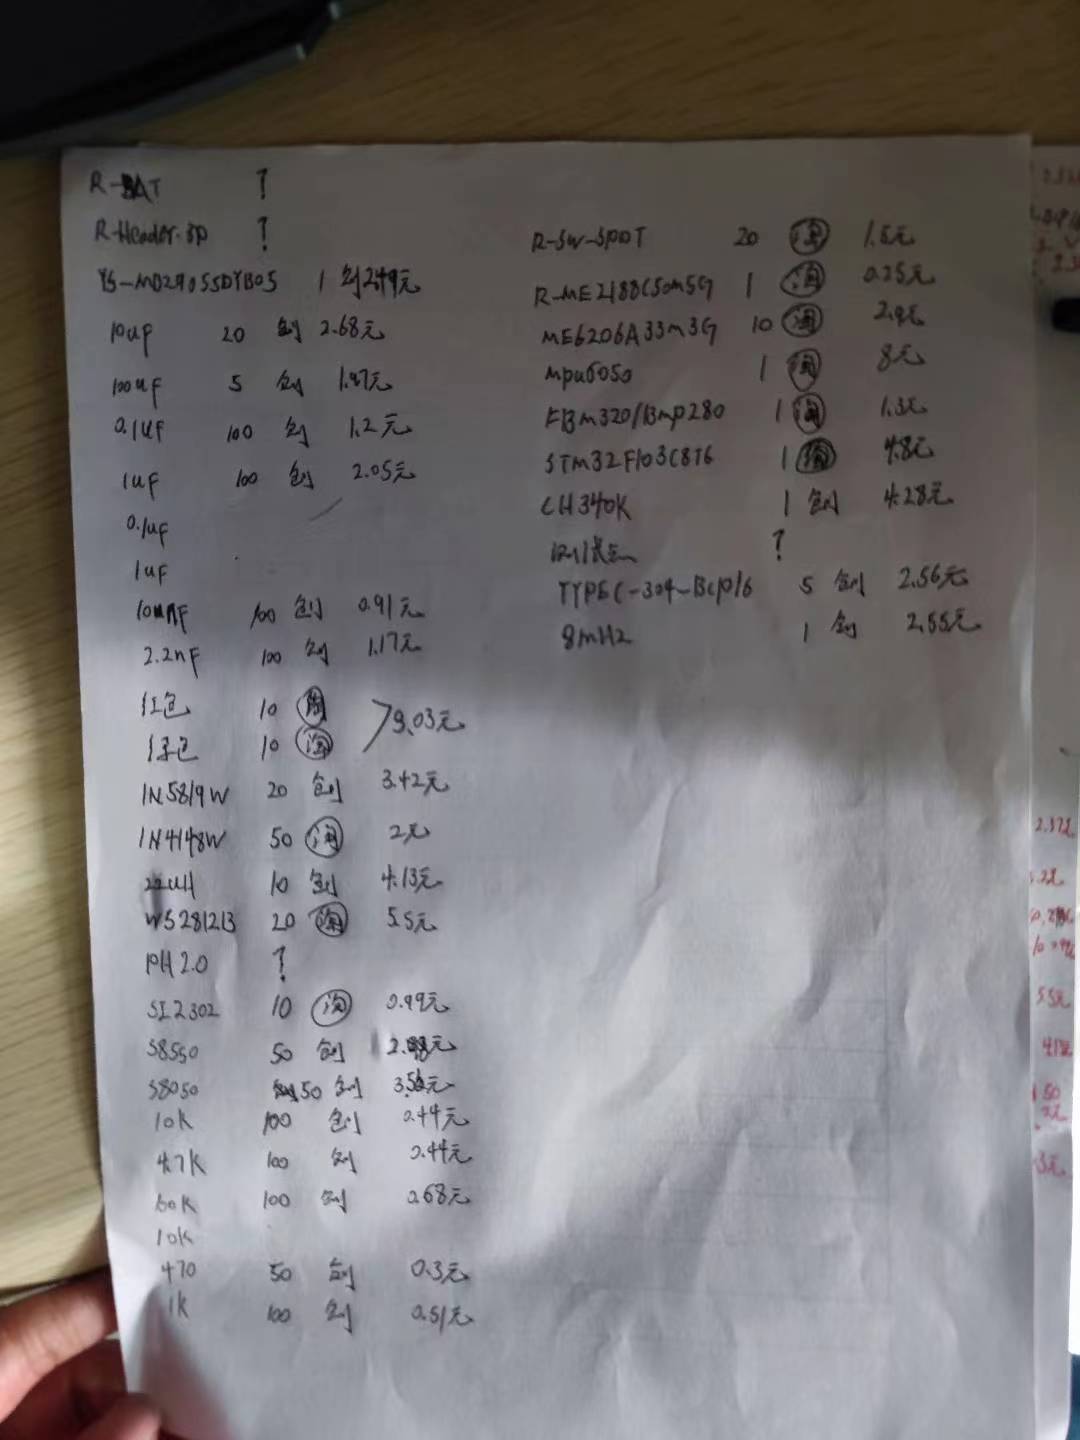 R-BAT ?
R-Header-3P ?
10uF 20 创 2.68元
100uF 5 创 1.47元
0.1uF 100 创 1.2元
1uF 100 创 2.05元
0.1uF
1uF
100 创 0.91元
2.2nF 100 创 1.17元
红色 10 淘
绿色 10 淘
9.03元
1N5819W 20 创 3.42元
1N4148W 50 淘 2元
22uH 10 创 4.13元
WS2812B 20 淘 5.5元
PH2.0 ?
SI2302 10 淘 0.99元
S8550 50 创
S8050 50 创
10K 100 创 0.44元
4.7K 100 创 0.44元
100 创 0.68元
10K
470 50 创 0.3元
1K 100 创 0.51元
R-SW-SPDT 20 淘 1.5元
R-ME2188C50M5G 1 淘 0.25元
ME6206A33M3G 10 淘
mpu6050 1 淘 8元
FBM320/Bmp280 1 淘 1.3元
STM32F103C8T6 1 淘 4.8元
CH340K 1 创 4.28元
?
TYPEC-304-BCP16 5 创 2.56元
8mHz 1 创 2.55元